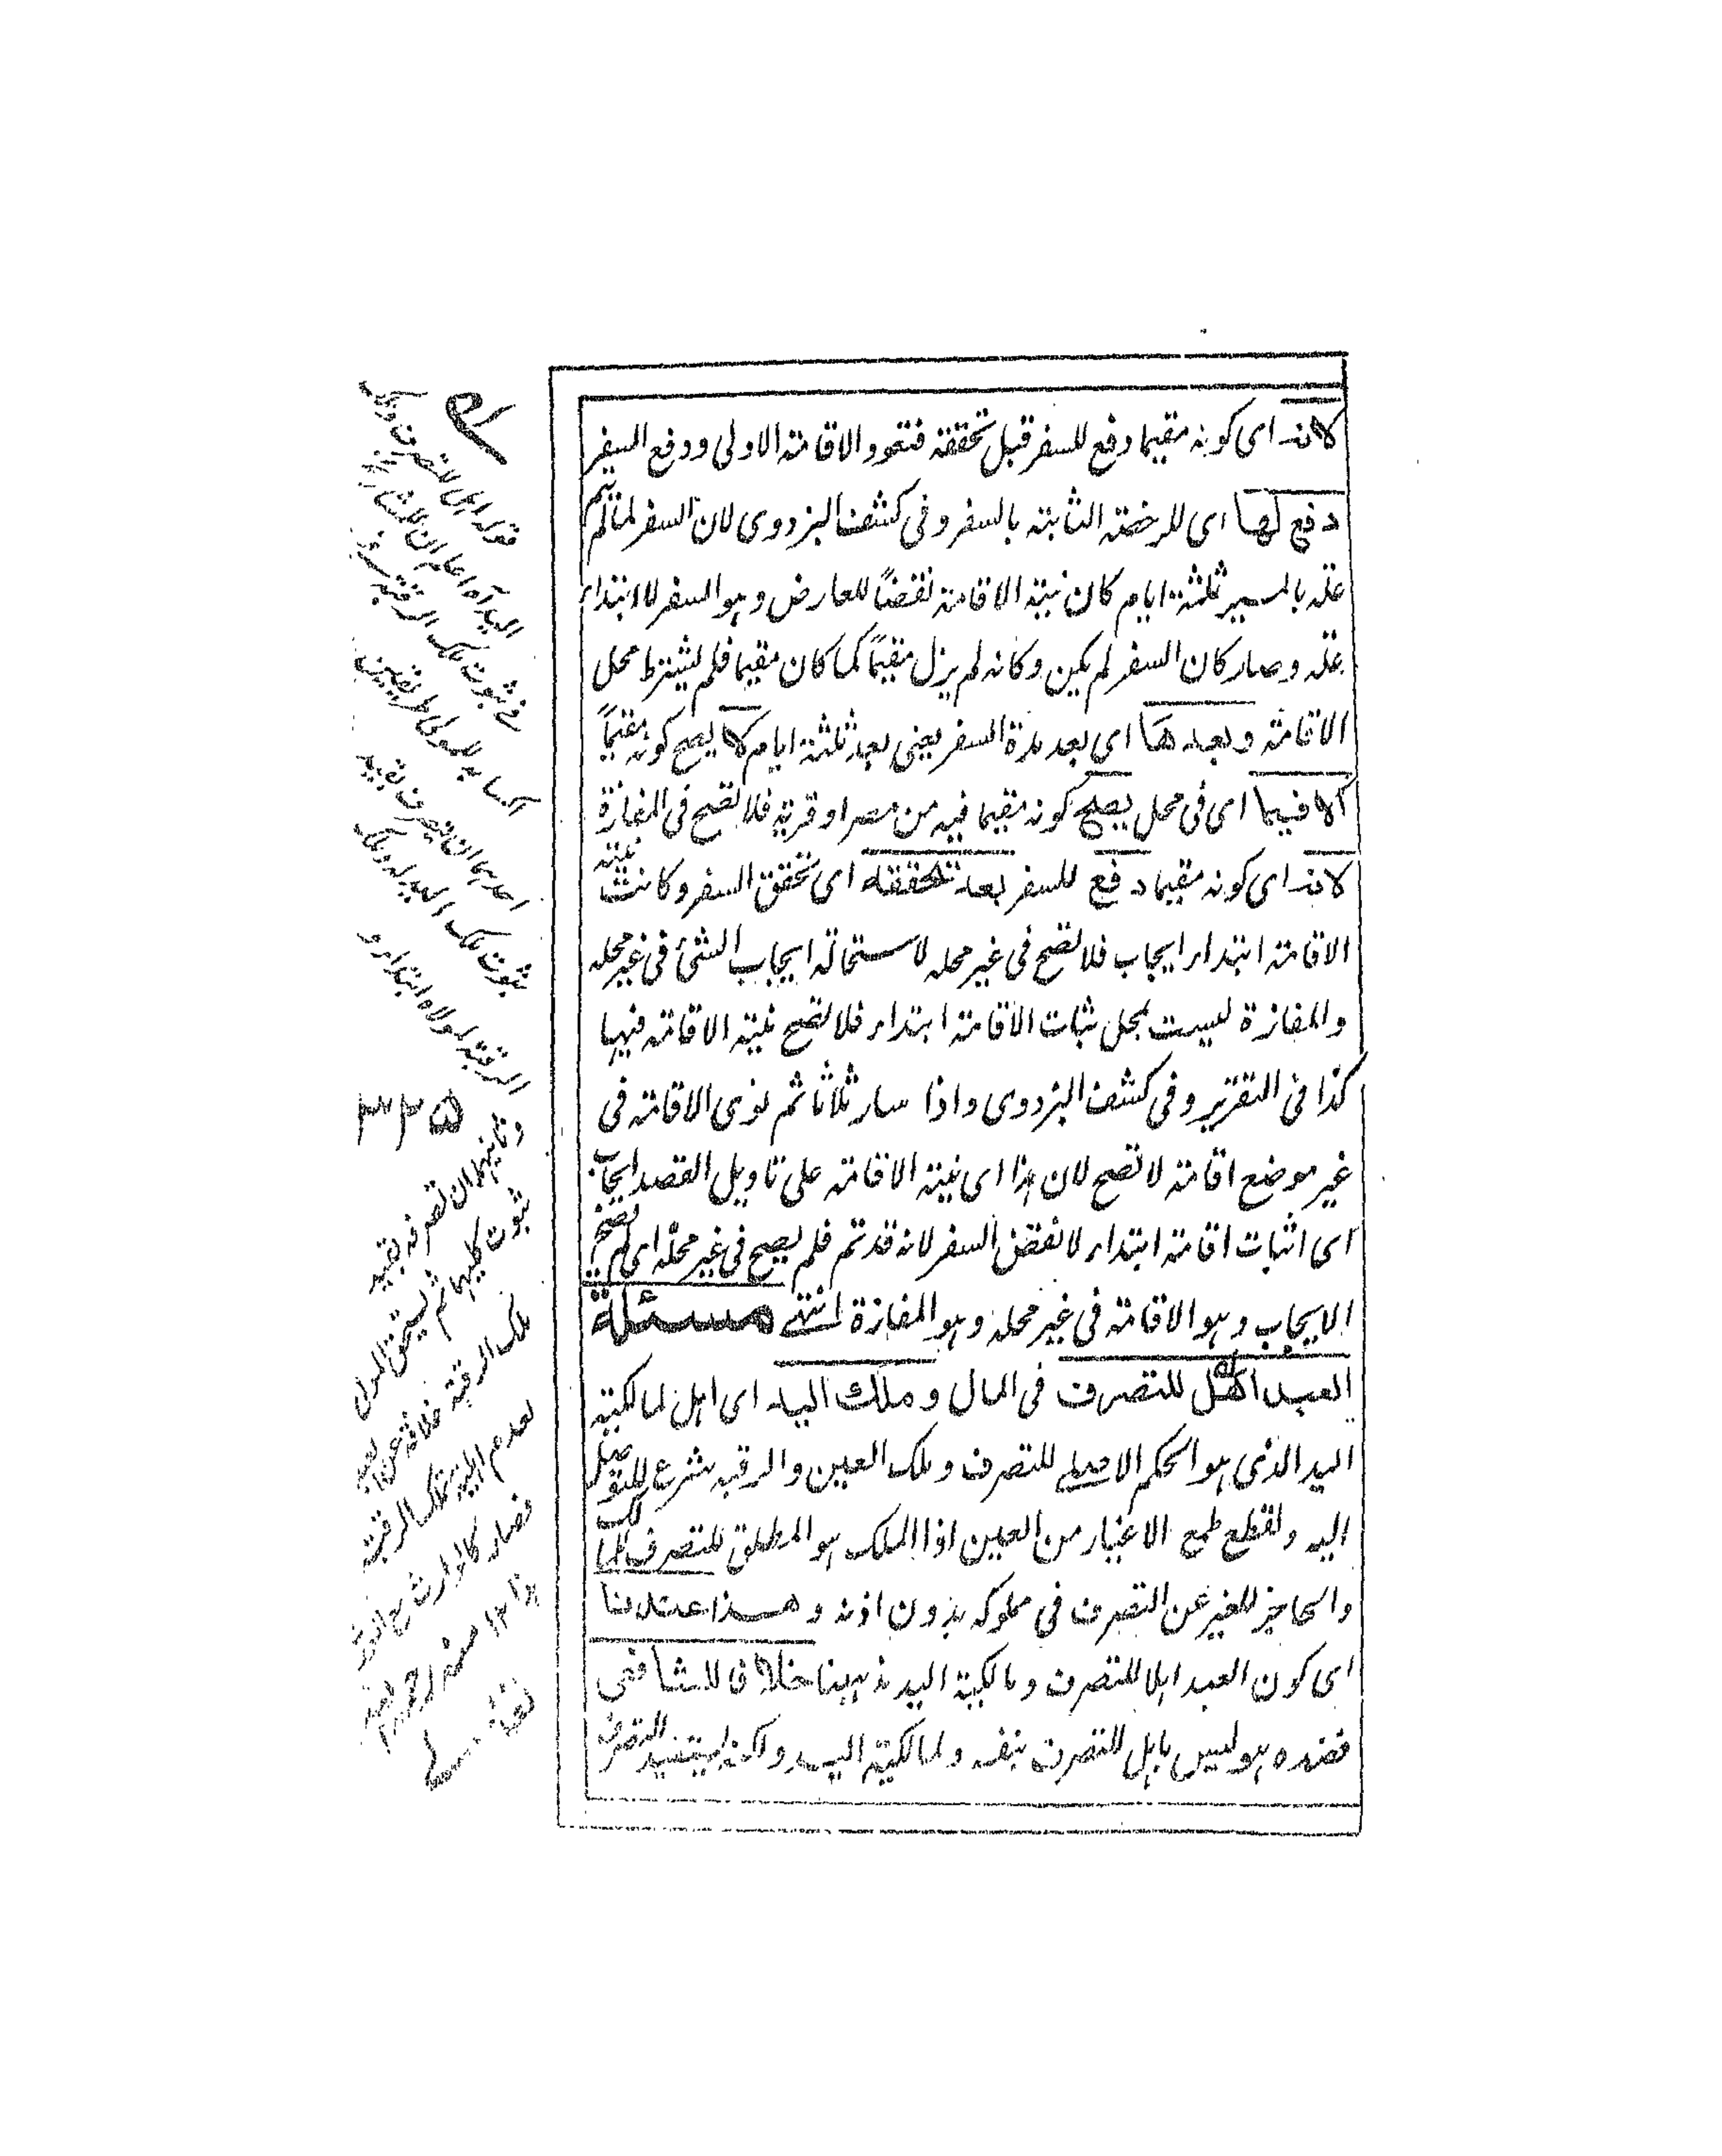 لانه اى كونه مقيما دفع للسفر قبل تحققه فتعود الاقامة الاولى ودفع السفر
دفع لها اى للرخصة الثابتة بالسفر وفى كشف البزدوى لان السفر لما لم يتم
علة بالمسير ثلثة ايام كان نية الاقامة نقضاً للعارض وهو السفر لا ابتداء
علة وصار كان السفر لم يكن وكانه لم يزل مقيماً كما كان مقيما فلم يشترط محل
الاقامة وبعدها اى بعد مدة السفر يعنى بعد ثلثة ايام لا يصح كونه مقيماً
الا فيما اى فى محل يصح كونه مقيما فيه من مصر او قرية فلا تصح فى المفازة
لانه اى كونه مقيما دفع للسفر بعد تحققه اى تحقق السفر وكانت نية
الاقامة ابتداء ايجاب فلا تصح فى غير محله لاستحالة ايجاب الشئ فى غير محله
والمفازة ليست بمحل ثبات الاقامة ابتداء فلا تصح نية الاقامة فيها
كذا فى التقرير وفى كشف البزدوى واذا سار ثلاثا ثم نوى الاقامة فى
غير موضع اقامة لا تصح لان هذا اى نية الاقامة على تاويل القصد ايجاب
اى اثبات اقامة ابتداء لا نقض السفر لانه قد تم فلم يصح فى غير محله اى لم يصح
الايجاب وهو الاقامة فى غير محله وهو المفازة انتهى مسئلة
العبد اهل للتصرف فى المال وملك اليد اى اهل لمالكية
اليد الذى هو الحكم الاصلى للتصرف وملك العين والرقبة شرع للتوصل
اليه ولقطع طمع الاغيار من العين اذا الملك هو المطلق للتصرف للمالك
والحاجز للغير عن التصرف فى مملوكه بدون اذنه وهذا عندنا
اى كون العبد اهلا للتصرف ومالكية اليد مذهبنا خلافا للشافعى
فعنده هو ليس باهل للتصرف بنفسه ولمالكية اليد ولكنه يستفيد التصرف
اليد آه اعلم ان
فى ثبوت ملك الرقبة
احدهما ان تصرفه يفيد
ثبوت ملك اليد له وملك
الرقبة لمولاه ابتداء و
٣٣٥
وثانيهما ان تصرفه يفيد
ثبوت كليهما ثم يستحق المولى
ملك الرقبة خلافة عن العبد
لعدم اهلية تملك الرقبة
فصار كالوارث مع المورث